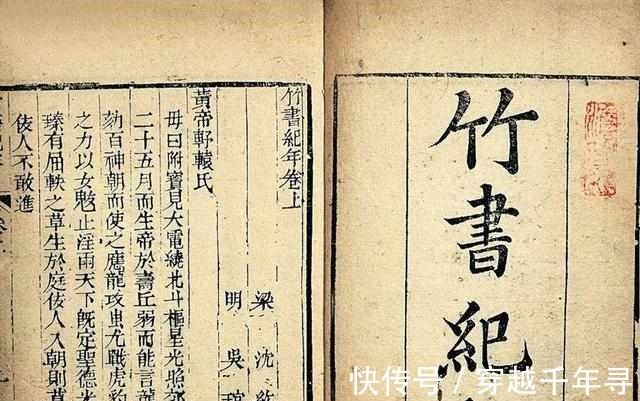 竹書紀
竹書紀年卷上
梁 沈約
明 吳琯
黃帝軒轅氏
母曰附寶見大電繞北斗樞星光照郊
二十五月而生帝於壽丘弱而能言龍
劾百神朝而使之應龍攻蚩尤戰虎豹
之力以女魃止淫雨天下旣定聖德光
臻有屈軼之草生於庭佞人入朝則草
佞人不敢進
快传号 / 穿越千年寻